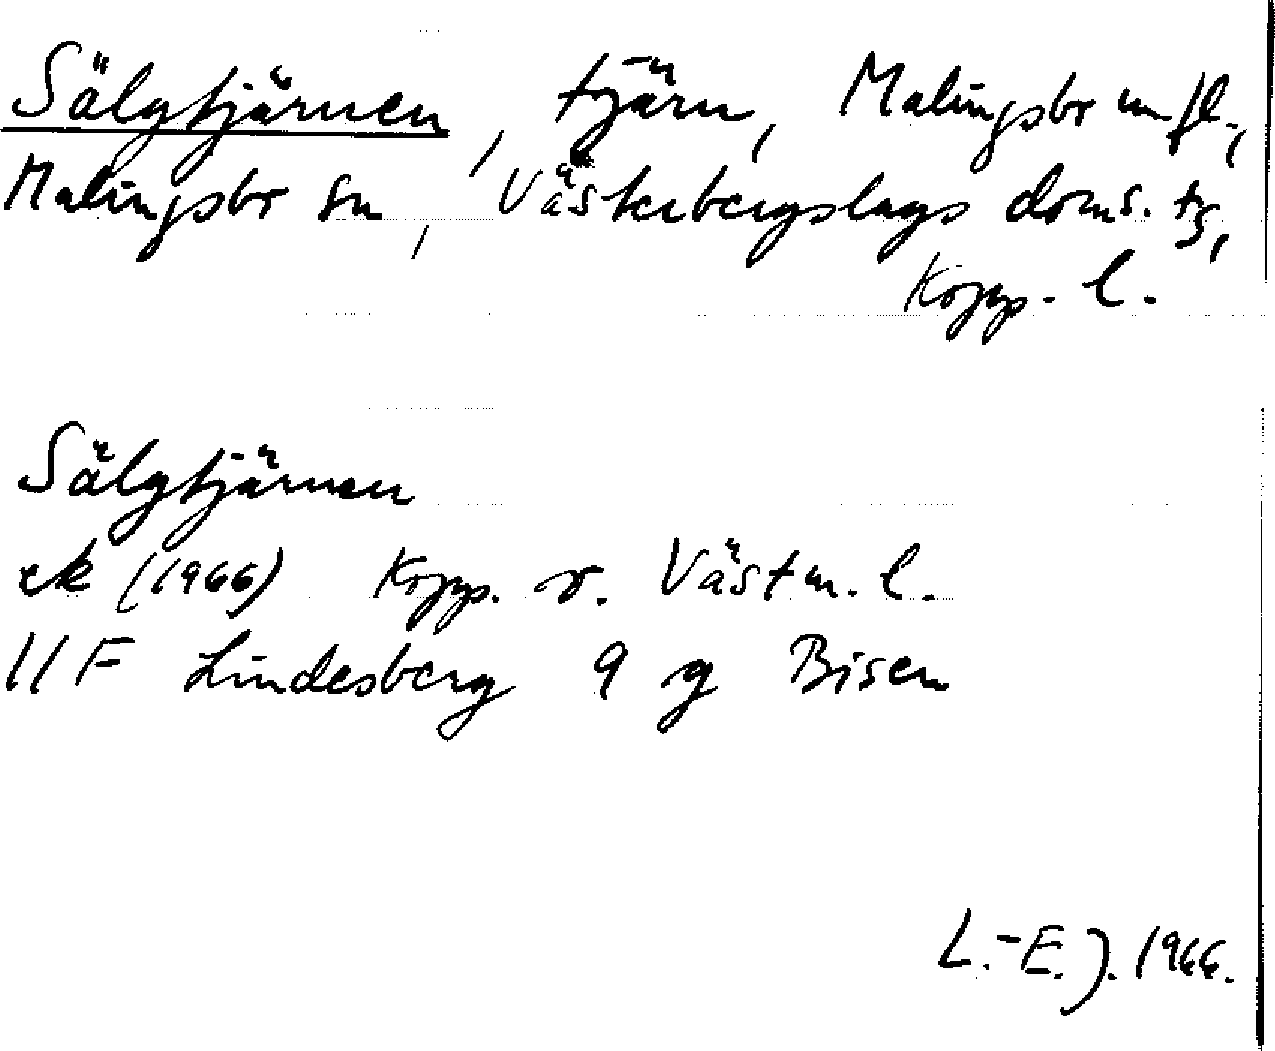 Sälgtjärnen, tjärn, Malingsbo m fl.,
Malingsbo sn, Västerbergslags doms. tg,
Kopp. l.
Sälgtjärnen
ek (1966) Kopp. o. Västm. l.
11F Lindesberg 9 g Bisen
L.-E. J. 1966.